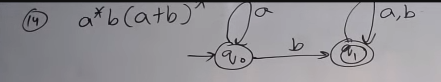 (14) a*b(a+b)*
a
a,b
q₀
b
q₁